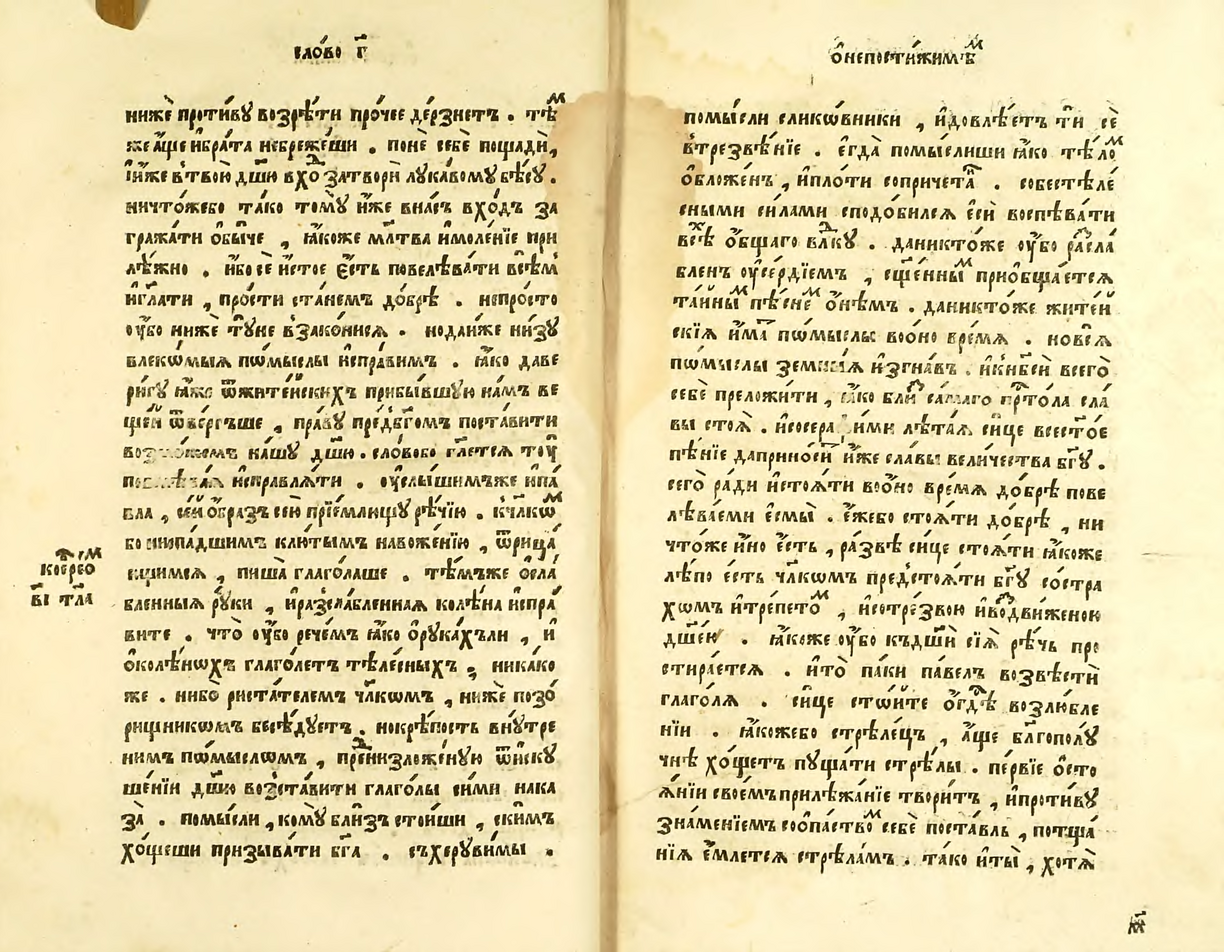 сло́во г҃
нижѐ проти́вꙋ возрѣ́ти про́чее де́рзнетъ . тѣⷨ
же а҆́ще и҆бра́та небреже́ши . понѐ себѐ пощадѝ,
и҆и́же в̾твою̀ дш҃ꙋ вхоⷣ затворѝ лꙋка́вомꙋ бѣ́сꙋ .
ничто́жебо та́ко томꙋ̀ и҆́же внасъ вхо́дъ за
гражда́ти ѻ҆бы́че , ꙗ҆́коже мл҃тва и҆моле́нїе при
лѣ́жно . и҆́бо сѐ и҆́стое є҆́сть повелѣва́ти всѣ́мъ
и҆гл҃ати , про́сти ста́немъ до́брѣ . непро́сто
ᲂу҆́бо нижѐ тꙋ́не в̾зако́нисѧ . нода́иже ни́зꙋ
влеко́мыѧ по́мыслы и҆спра́вимъ . ꙗ҆́ко даве
ри́гꙋ ꙗ҆́же ѿжите́йскихъ прибы́вшꙋю на́мъ ве
ще́й ѿве́ргъше , пра́вꙋ предбг҃омъ поста́вити
нашꙋ дш҃ꙋ . сло́вобо гл҃етсѧ тꙋ́
и҆справлѧ́ти . ᲂу҆слы́шимъже и҆па́
вла , се́й ѻ҆́бразъ сею̀ прїе́млющꙋ рѣ́чїю . кчл҃кѡⷨ
бо ниспа́дшимъ клю́тымъ навоже́нїю , ѿрица́
ющимсѧ , пиша̀ глаго́лаше . тѣ́мъже ѻ҆сла́
бленныѧ рꙋ́ки , и҆разсла́бленнаѧ колѣ́на и҆спра́
вите . что̀ ᲂу҆́бо рече́мъ ꙗ҆́ко ѻ҆рꙋка́хъли , и҆
ѻ҆колѣ́нѡхъ глаго́летъ тѣле́сныхъ ; ника́ко
же . ни́бо риста́телемъ чл҃кѡмъ , нижѐ позо́
рищникѡмъ бесѣ́дꙋетъ . нокрѣ́пость внꙋ́тре
нимъ по́мыслѡмъ , пре́низложе́нꙋю ѿискꙋ
ше́нїи дш҃ꙋ возста́вити глаго́лы си́ми нака
за̀ . помы́сли , комꙋ̀ бли́зъ стои́ши , ски́мъ
хо́щеши призыва́ти бг҃а . съхерꙋви́мы .
к҃ор҇ео
в҃і гл҃а
ѻ҆непости́жимѣⷨ
помы́сли сликѡвники , и҆довлѣ́етъ тѝ сѐ
в̾трезвѣ́нїе . є҆гда̀ помы́слиши ꙗ҆́ко тѣ́лоⷨ
ѻ҆бложе́нъ , и҆пло́ти сопричета́ . собестѣле́
сными си́лами сподо́билсѧ є҆сѝ воспѣва́ти
всѣⷯ ѻ҆́бщаго влⷣкꙋ . даникто́же ᲂу҆́бо ра́сла
бленъ ᲂу҆се́рдїемъ , сщ҃е́нныⷨ приѻбща́етсѧ
та́йныⷨ пѣ́снеⷨ ѻ҆́нѣмъ . даникто́же жите́й
скїѧ и҆́ма по́мыслы воѻ́но вре́мѧ . новсѧ̀
по́мыслы земны́ѧ и҆згна́въ . и҆кнб҃сѝ всего̀
себѐ преложи́ти , ꙗ҆́ко бли́ⷥ са́маго прⷭ҇то́ла сла́
вы стоѧ̀ . и҆ссера ими лѣ́таѧ си́це всесто́е
пѣ́нїе даприно́ситъ и҆́же славы вели́чества бг҃ꙋ .
сего̀ ра́ди и҆стоѧ́ти воѻ́но вре́мѧ до́брѣ пове
лѣва́еми є҆смы̀ . є҆́жебо стоѧ́ти до́брѣ , ни
что́же и҆́но є҆́сть , ра́звѣ си́це стоѧ́ти ꙗ҆́коже
лѣ́по є҆́сть чл҃кѡмъ предстоѧ́ти бг҃ꙋ состра́
хѡмъ и҆тре́петоⷨ , и҆сотре́звою и҆воⷥдви́женою
дш҃е́ю . ꙗ҆́коже ᲂу҆́бо къдш҃ѝ сїѧ̀ рѣ́чь про
стира́етсѧ . и҆то̀ па́ки па́велъ возвѣстѝ
глаго́лѧ . си́це сто́ите ѻ҆́гдⷭ҇ѣ возлю́бле
нїи . ꙗ҆́кожебо стрѣле́цъ , а҆́ще благополꙋ́
чнѣ хо́щетъ пꙋща́ти стрѣ́лы . пе́рвїе ѻ҆сто
ѧ҆́нїи свое́мъ прилѣжа́нїе твори́тъ , и҆проти́вꙋ
зна́менїемъ соѻпа́ствоⷨ себѐ поста́вль , потща́
нїѧ є҆́млетсѧ стрѣла́мъ . та́ко и҆ты̀ , хотѧ̀
к҃а